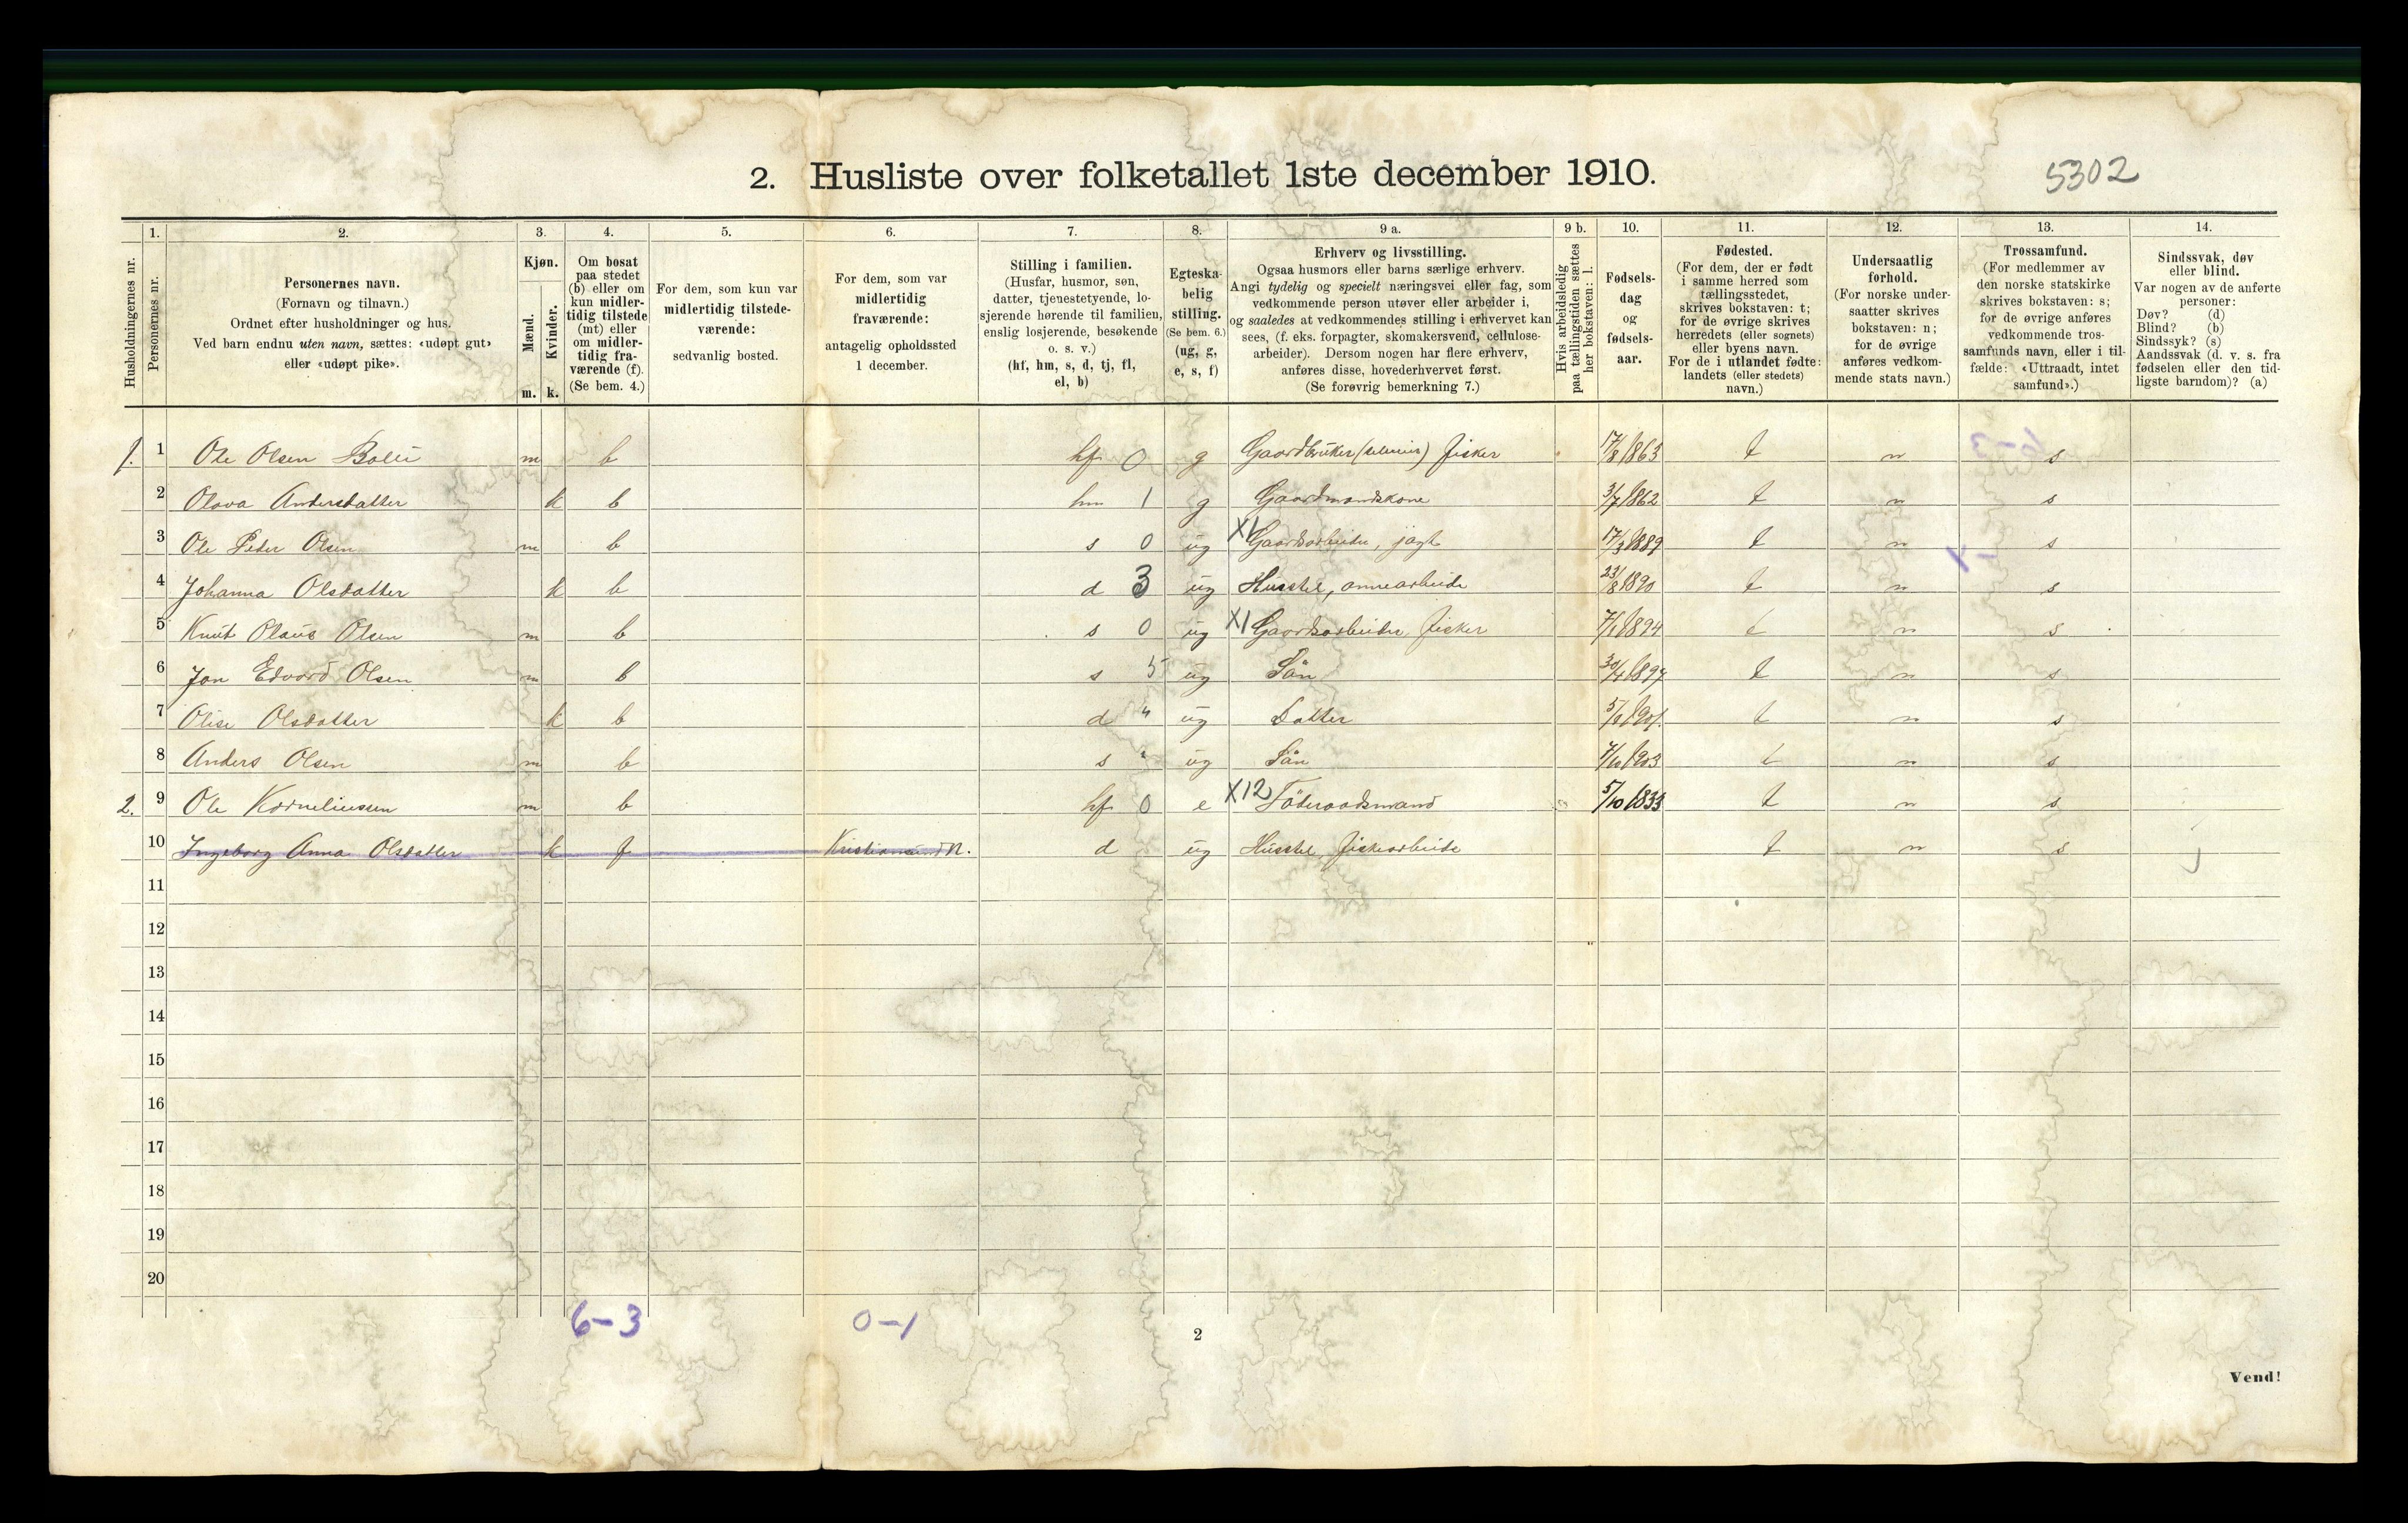 2. Husliste over folketallet 1ste december 1910.
5302
Husholdningernes nr.
1.
Personernes nr.
2.
Personernes navn.
(Fornavn og tilnavn.)
Ordnet efter husholdninger og hus.
Ved barn endnu uten navn, sættes: «udøpt gut»
eller «udøpt pike».
3.
Kjøn.
Mænd.
Kvinder.
m. k.
4.
Om bosat
paa stedet
(b) eller om
kun midler-
tidig tilstede
(mt) eller
om midler-
tidig fra-
værende (f).
(Se bem. 4.)
5.
For dem, som kun var
midlertidig tilstede-
værende:
sedvanlig bosted.
6.
For dem, som var
midlertidig
fraværende:
antagelig opholdssted
1 december.
7.
Stilling i familien.
(Husfar, husmor, søn,
datter, tjenestetyende, lo-
sjerende hørende til familien,
enslig losjerende, besøkende
o. s. v.)
(hf, hm, s, d, tj, fl,
el, b)
8.
Egteska-
belig
stilling.
(Se bem. 6.)
(ug, g,
e, s, f)
9 a.
Erhverv og livsstilling.
Ogsaa husmors eller barns særlige erhverv.
Angi tydelig og specielt næringsvei eller fag, som
vedkommende person utøver eller arbeider i,
og saaledes at vedkommendes stilling i erhvervet kan
sees, (f. eks. forpagter, skomakersvend, cellulose-
arbeider). Dersom nogen har flere erhverv,
anføres disse, hovederhvervet først.
(Se forøvrig bemerkning 7.)
9 b.
Hvis arbeidsledig
paa tællingstiden sættes
her bokstaven: l.
10.
Fødsels-
dag
og
fødsels-
aar.
11.
Fødested.
(For dem, der er født
i samme herred som
tællingsstedet,
skrives bokstaven: t;
for de øvrige skrives
herredets (eller sognets)
eller byens navn.
For de i utlandet fødte:
landets (eller stedets)
navn.)
12.
Undersaatlig
forhold.
(For norske under-
saatter skrives
bokstaven: n;
for de øvrige
anføres vedkom-
mende stats navn.)
13.
Trossamfund.
(For medlemmer av
den norske statskirke
skrives bokstaven: s;
for de øvrige anføres
vedkommende tros-
samfunds navn, eller i til-
fælde: «Uttraadt, intet
samfund».)
14.
Sindssvak, døv
eller blind.
Var nogen av de anførte
personer:
Døv? (d)
Blind? (b)
Sindssyk? (s)
Aandssvak (d. v. s. fra
fødselen eller den tid-
ligste barndom)? (a)
1. 1 Ole Olsen m b hf 0 g Gaardbruker (selveier) fisker 17/8 1863 t n s
2 Olava Andersdatter k b hm 1 g Gaardmandskone 3/7 1862 t n s
3 Ole Peder Olsen m b s 0 ug X1 Gaardsarbeider, jagt 17/3 1889 t n s
4 Johanna Olsdatter k b d 3 ug Husstel, annearbeide 23/8 1890 t n s
5 Knut Olaus Olsen m b s 0 ug X1 Gaardsarbeider, fisker 7/1 1894 t n s
6 Jon Edvard Olsen m b s 5 ug Sön 30/4 1897 t n s
7 Olise Olsdatter k b d " ug Datter t n s
8 Anders Olsen m b s " ug Sön 7/10 1903 t n s
2. 9 Ole Korneliussen m b hf 0 e X12 Föderaadsmand 5/10 1833 t n s
10 Ingeborg Anna Olsdatter k f Kristiansund N. d ug Husstel, fiskearbeide t n s
11
12
13
14
15
16
17
18
19
20
6-3
0-1
2
Vend!